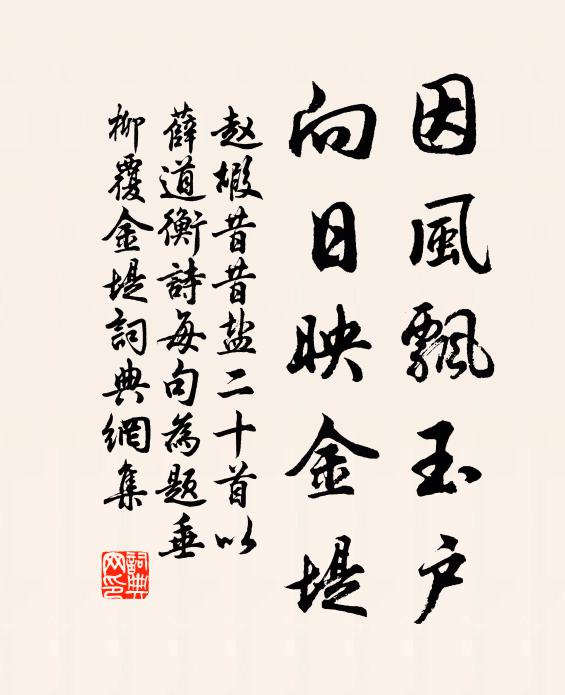 因風飄玉户
向日映金堤
赵嘏昔昔盐二十首以
薛道衡詩每句為题垂
柳覆金堤詞典網集
詞典网印